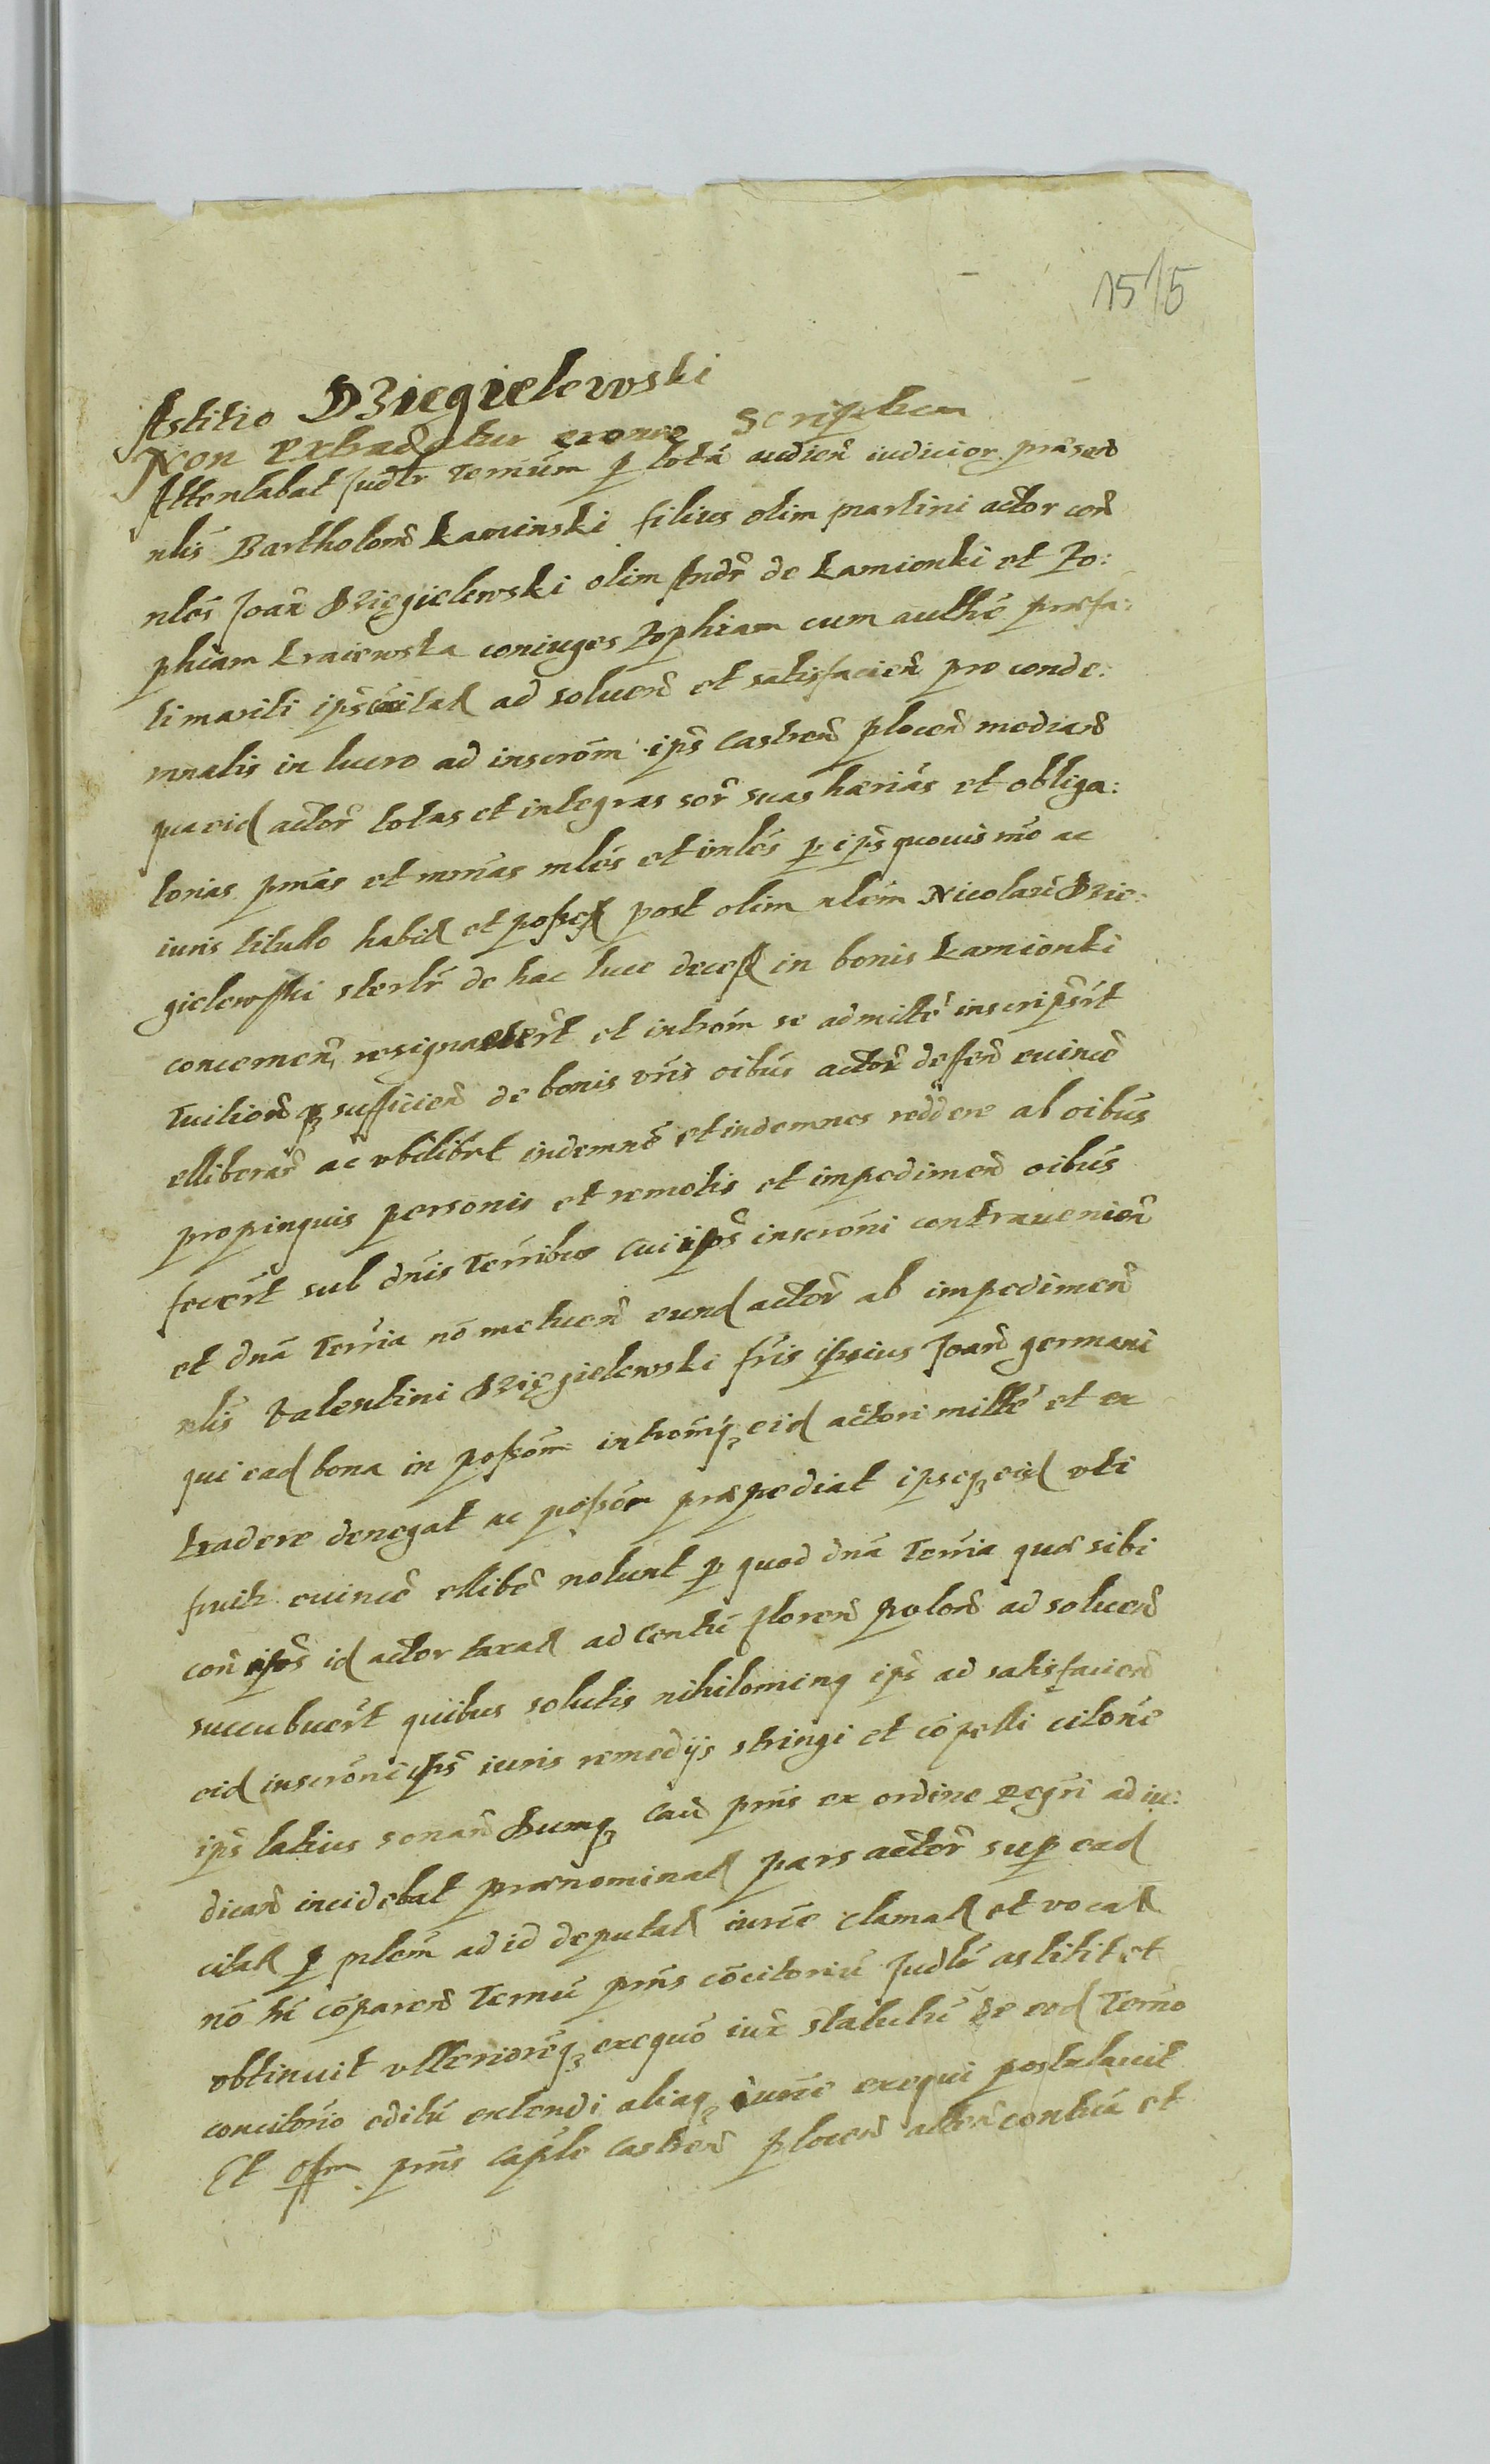 15/5
Astitio Dziegielewski
Non Extradatur erronee Scriptum
Attentabat Judtr Terminum p totā audien̄ iudicior. præsen̄
nlis Bartholom̄ Kaminski filius olim Martini actor con̄
nles Joan̄ Dzięgielewski olim Andr̄ de Kamionki et Zo:
phiam Kraiewska coniuges Zophiam cum authē præfa:
ti mariti ips̄ citat ad soluen̄ et satisfacien̄ pro conde:
mnatis in lucro ad inscrom̄ ips̄ Castren̄ plocen̄ median̄
qua eid actor̄ totas et integras sor̄ suas hæriās et obliga:
torias pmās et mrnas mles et imles p ips̄ quouis mō ac
iuris titulo habit et posses post olim nlem Nicolaū Dzie:
gielewski sterlr̄ de hac luce decess in bonis Kamionki
concernen̄ resignauert et introm̄ se admittē inscripsrt
Tuitionēq₃ sufficien̄ de bonis vris oibus actor̄ deffen̄ euincē
elliberar̄ ac vbilibet indemnē et indemnes reddere ab oibus
propinquis personis et remotis et impedimen̄ oibus
fecert sub dnis Terribus cui ipos inscroni contrauenien̄
et dnā Terria nō metuen̄ eund actor̄ ab impedimen̄
nlis Valentini Dzięgielewski fris ipsius Joan̄ germani
qui ead bona in possom̄ intromq₃ eid actori mittē et ex
tradere denegat ac possom̄ præpediat ipseq₃ eisd vti
fruit euincē ellibē nolunt p quod dnā Terria quæ sibi
con̄ ipos id actor taxat ad Centū floren̄ polon̄ ad soluen̄
succubuert quibus solutis nihilominq ips̄ ad satisfacien̄
eid inscroni ips̄ iuris remedijs stringi et cōpelli citone
ips̄ latius sonan̄ Dumq₃ Cau pns ex ordine Regri ad iu:
dican̄ incidebat prænominat pars actor̄ sup ead
citat p mlem ad id deputat iurie clamat et vocat
nō hi cōparen̄ Ternū pns cōcitoriū Judle astitit et
obtinuit vlterioreq₃ exequō iur̄ statutū de eod Terno
concitorio editū extendi aliaq₃ iurie exequi postulauit
Et offm pns Caple Castren̄ plocen̄ atten̄ contiā et